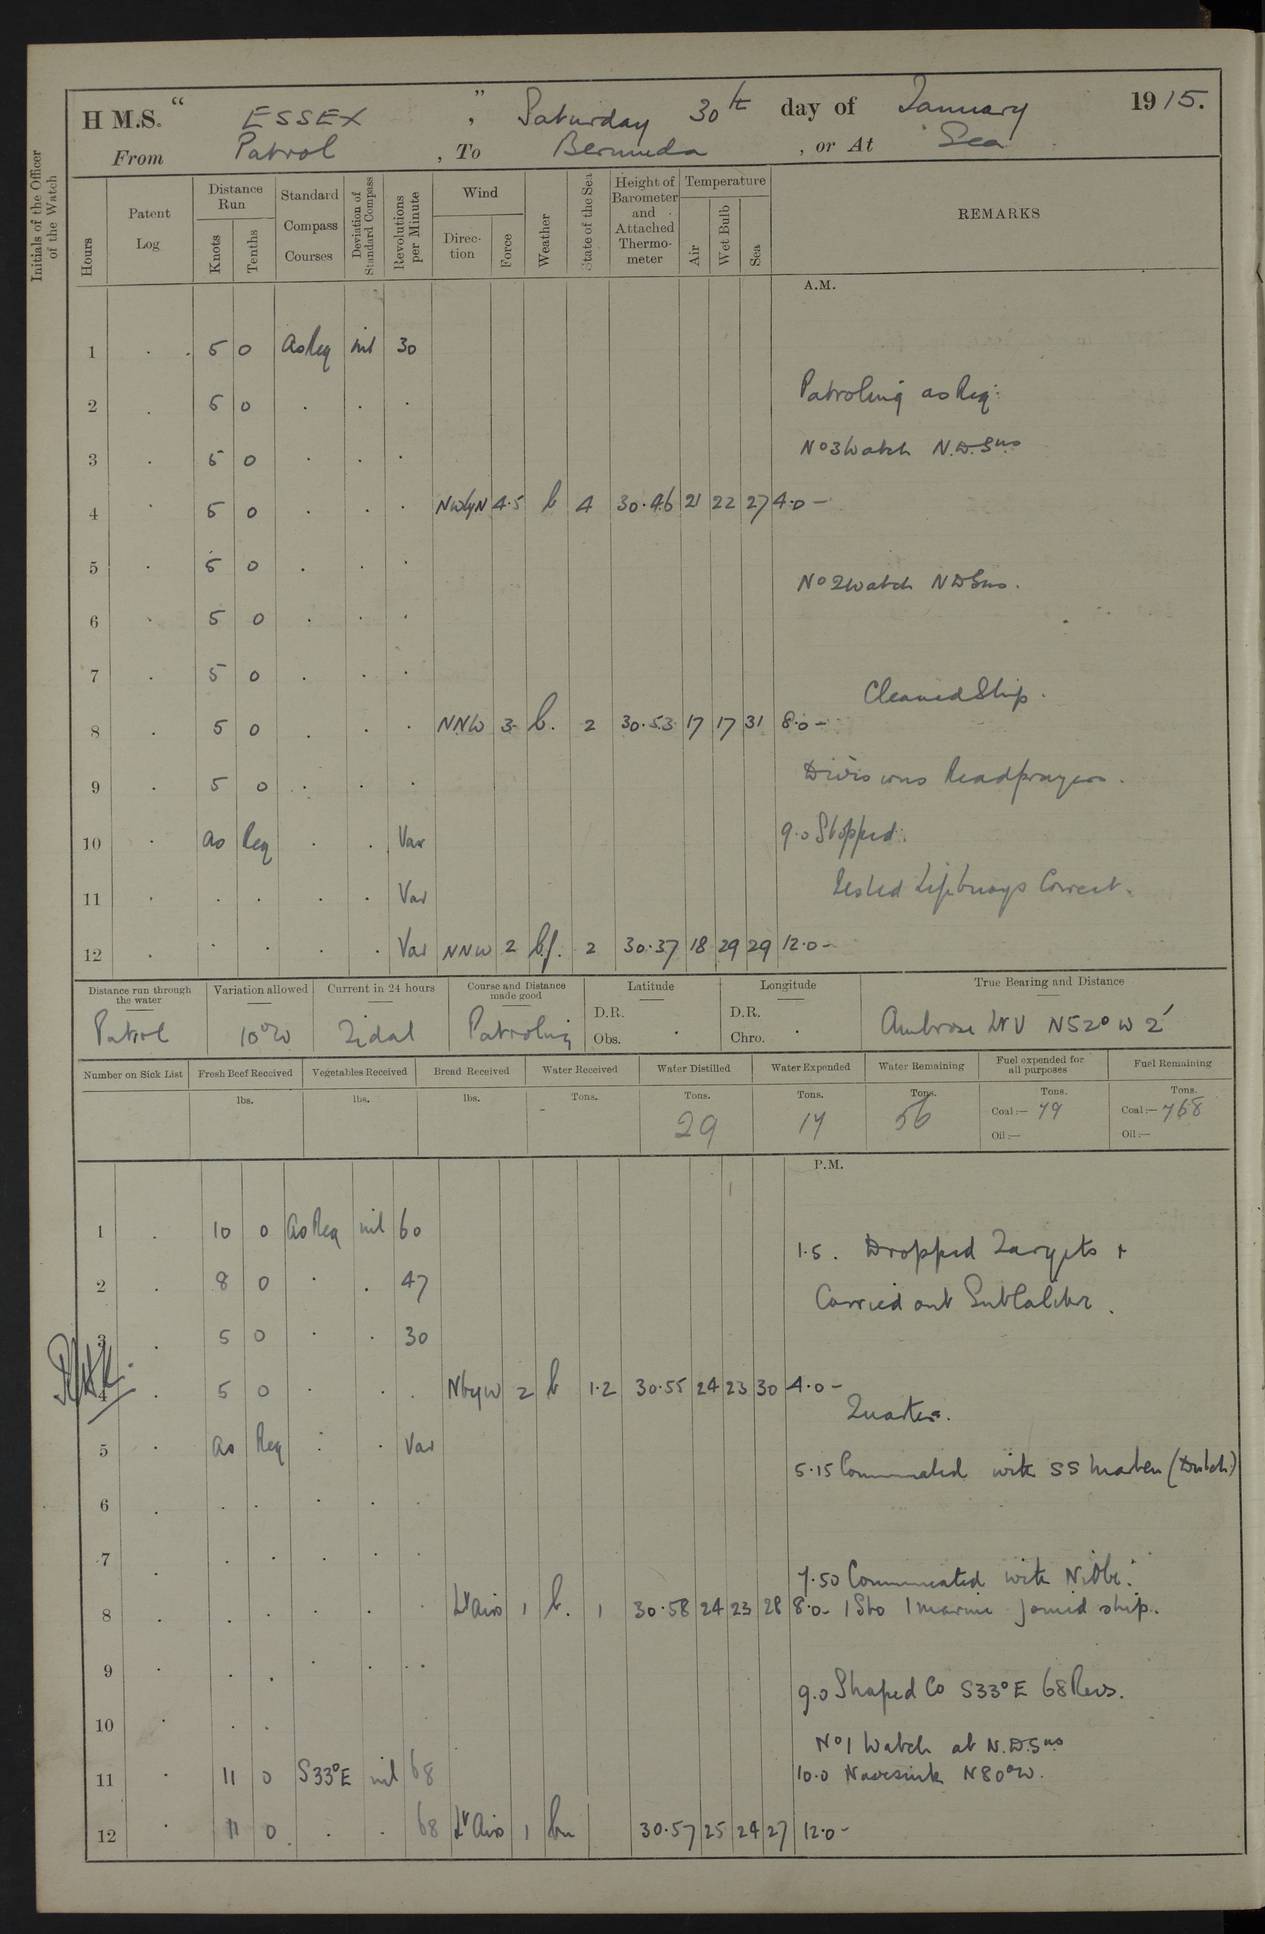 H M.S. “ ESSEX ” , Saturday 30th day of January 1915.
From Patrol , To Bermuda , or At Sea
Initials of the Officer of the Watch
Hours
Patent Log
Distance Run
Knots Tenths
Standard Compass Courses
Deviation of Standard Compass
Revolutions per Minute
Wind
Direc-tion Force
Weather
State of the Sea
Height of Barometer and Attached Thermo-meter
Temperature
Air Wet Bulb Sea
REMARKS
A.M.
1 . . 5 0 As Req nil 30
2 . 5 0 . . .
Patroling as Req:
3 . 5 0 . . .
No 3 Watch N.D.Sns
4 . 5 0 . . . NWbyN 4.5 b 4 30.46 21 22 27 4.0 -
5 . 5 0 . . .
No 2 watch NDSns.
6 . 5 0 . . .
7 . 5 0 . . .
Cleaned Ship.
8 . 5 0 . . . NNW 3 b. 2 30.53 17 17 31 8.0 -
Divisions Read prayers.
9 . 5 0 . . .
10 . As Req . . Var
9.0 Stopped.
11 . . . . . Var
Tested Lifebuoys Correct.
12 . . . . . Var NNW 2 b.f. 2 30.37 18 29 29 12.0 -
Distance run through the water
Variation allowed
Current in 24 hours
Course and Distance made good
Latitude
Longitude
True Bearing and Distance
Patrol 10°W Tidal Patroling D.R. D.R. Ambrose Lt V N52°W 2'
Obs. . Chro. .
Number on Sick List
Fresh Beef Received
Vegetables Received
Bread Received
Water Received
Water Distilled
Water Expended
Water Remaining
Fuel expended for all purposes
Fuel Remaining
lbs. lbs. lbs. Tons. Tons. Tons. Tons. Tons. Tons.
- 29 17 56 Coal:— 79 Coal:— 768
Oil:— Oil:—
P.M.
1 . 10 0 As Req nil 60
1.5. Dropped Targets +
2 . 8 0 . . 47
Carried out SubCalibre.
3 . 5 0 . . 30
4 . 5 0 . . . NbyW 2 b 1.2 30.55 24 23 30 4.0 -
Quarters.
5 . As Req . . Var
5.15 Communicated with SS Marten (Dutch)
6 . . . . . .
7 . . . . . .
7.50 Communicated with Niobe.
8 . . . . . Lt Airs 1 b. 1 30.58 24 23 28 8.0 - 1 Sto 1 marine joined ship.
9 . . . . . . .
9.0 Shaped Co S33°E 68 Revs.
10 . . .
No 1 Watch at N.D.Sns
11 . 11 0 S33°E nil 68
10.0 Navesink N80°W.
12 . 11 0 . . 68 Lt Airs 1 bm 30.57 25 24 27 12.0 -